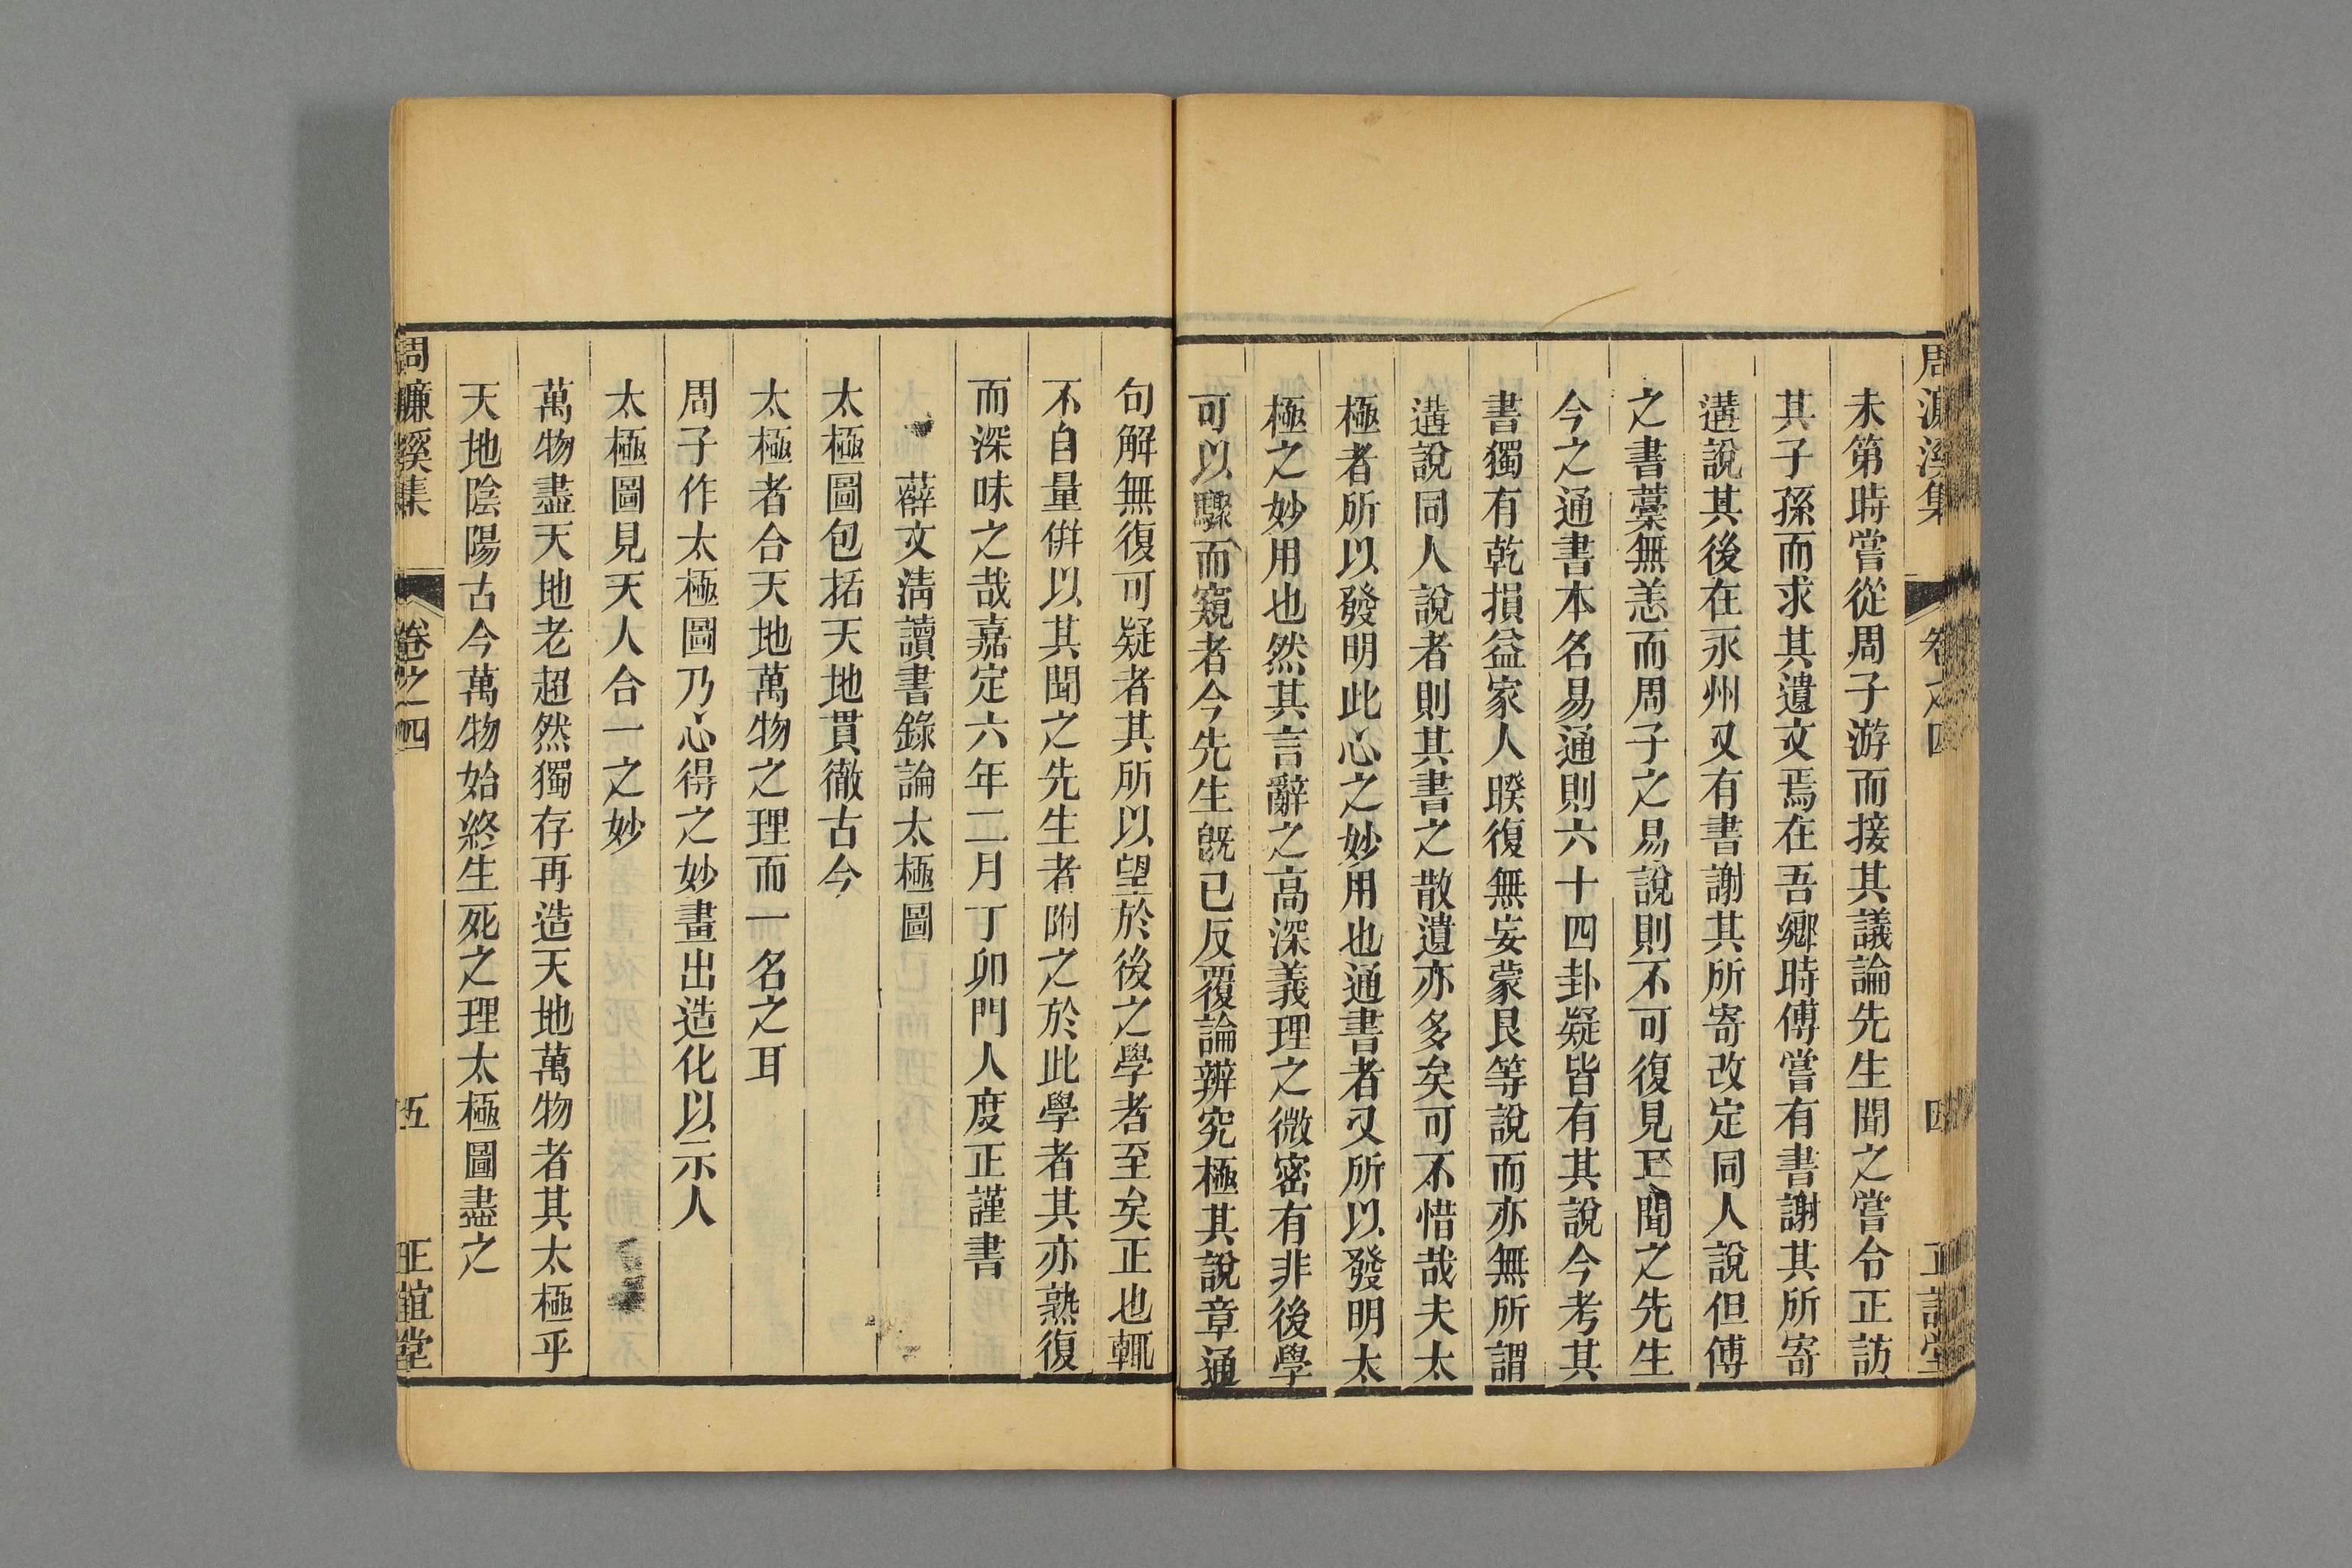 周濂溪集
卷之四
四
正誼堂
未第時嘗從周子游而接其議論先生聞之嘗令正訪
其子孫而求其遺文焉在吾鄉時傅嘗有書謝其所寄
遘說其後在永州又有書謝其所寄改定同人說但傅
之書藁無恙而周子之易說則不可復見聞之先生
今之通書本名易通則六十四卦疑皆有其說今考其
書獨有乾損益家人睽復無妄蒙艮等說而亦無所謂
遘說同人說者則其書之散遺亦多矣可不惜哉夫太
極者所以發明此心之妙用也通書者又所以發明太
極之妙用也然其言辭之高深義理之微密有非後學
可以驟而窺者今先生旣已反覆論辨究極其說章通
句解無復可疑者其所以望於後之學者至矣正也輒
不自量倂以其聞之先生者附之於此學者其亦熟復
而深味之哉嘉定六年二月丁卯門人度正謹書
薛文淸讀書錄論太極圖
太極圖包括天地貫徹古今
太極者合天地萬物之理而一名之耳
周子作太極圖乃心得之妙畫出造化以示人
太極圖見天人合一之妙
萬物盡天地老超然獨存再造天地萬物者其太極乎
天地陰陽古今萬物始終生死之理太極圖盡之
周濂溪集
卷之四
五
正誼堂